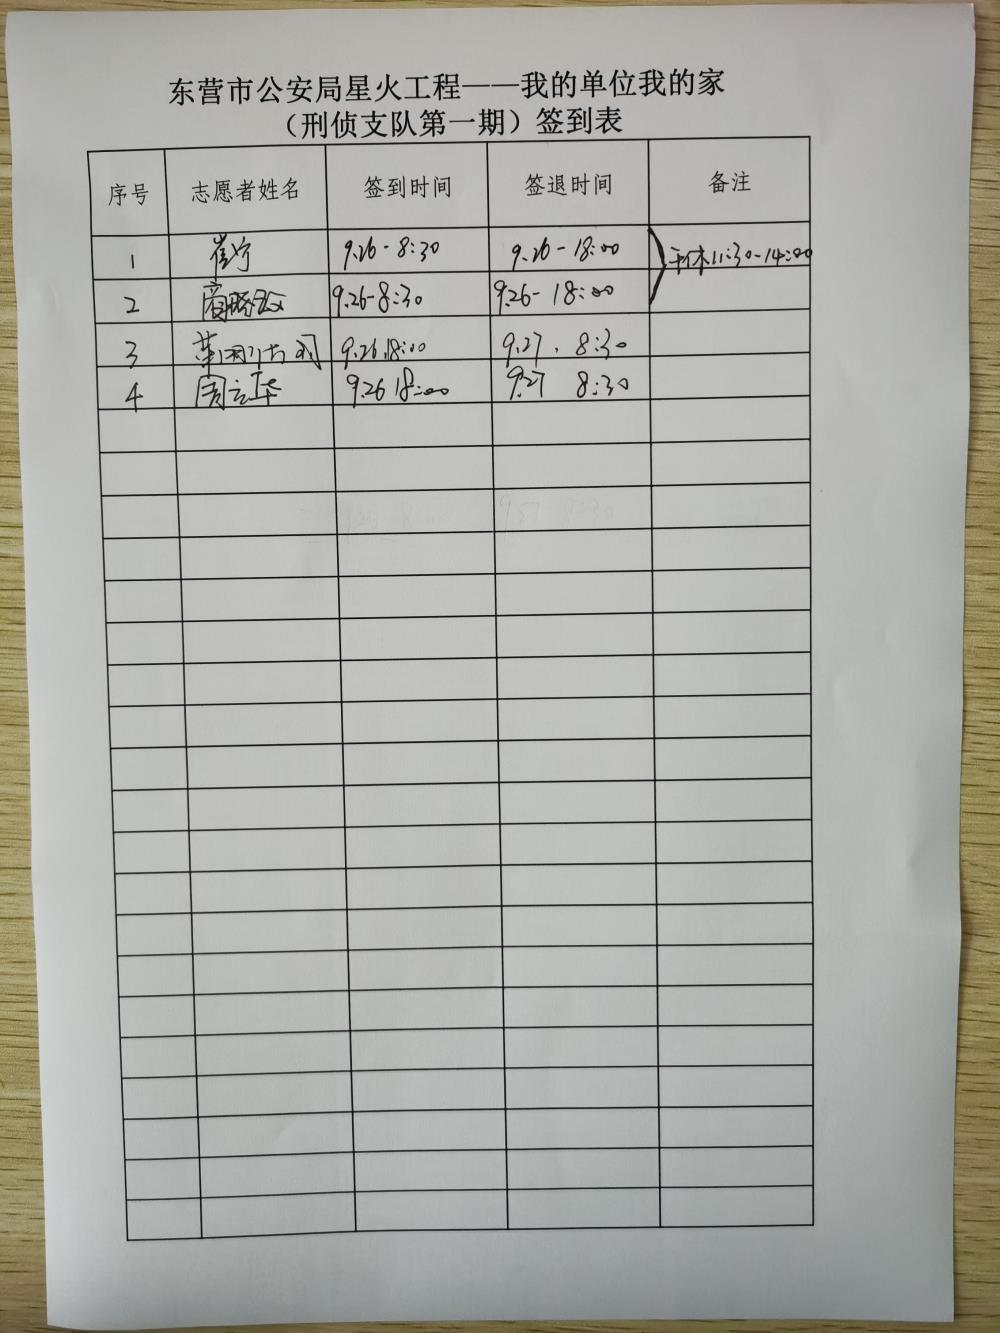 东营市公安局星火工程——我的单位我的家
（刑侦支队第一期）签到表
序号 志愿者姓名 签到时间 签退时间 备注
1 崔宁 9.26-8:30 9.26-18:00 午休11:30-14:00
2 9.26-8:30 9.26-18:00
3 9.26.18:00 9.27. 8:30
4 周立华 9.26 18:00 9.27 8:30